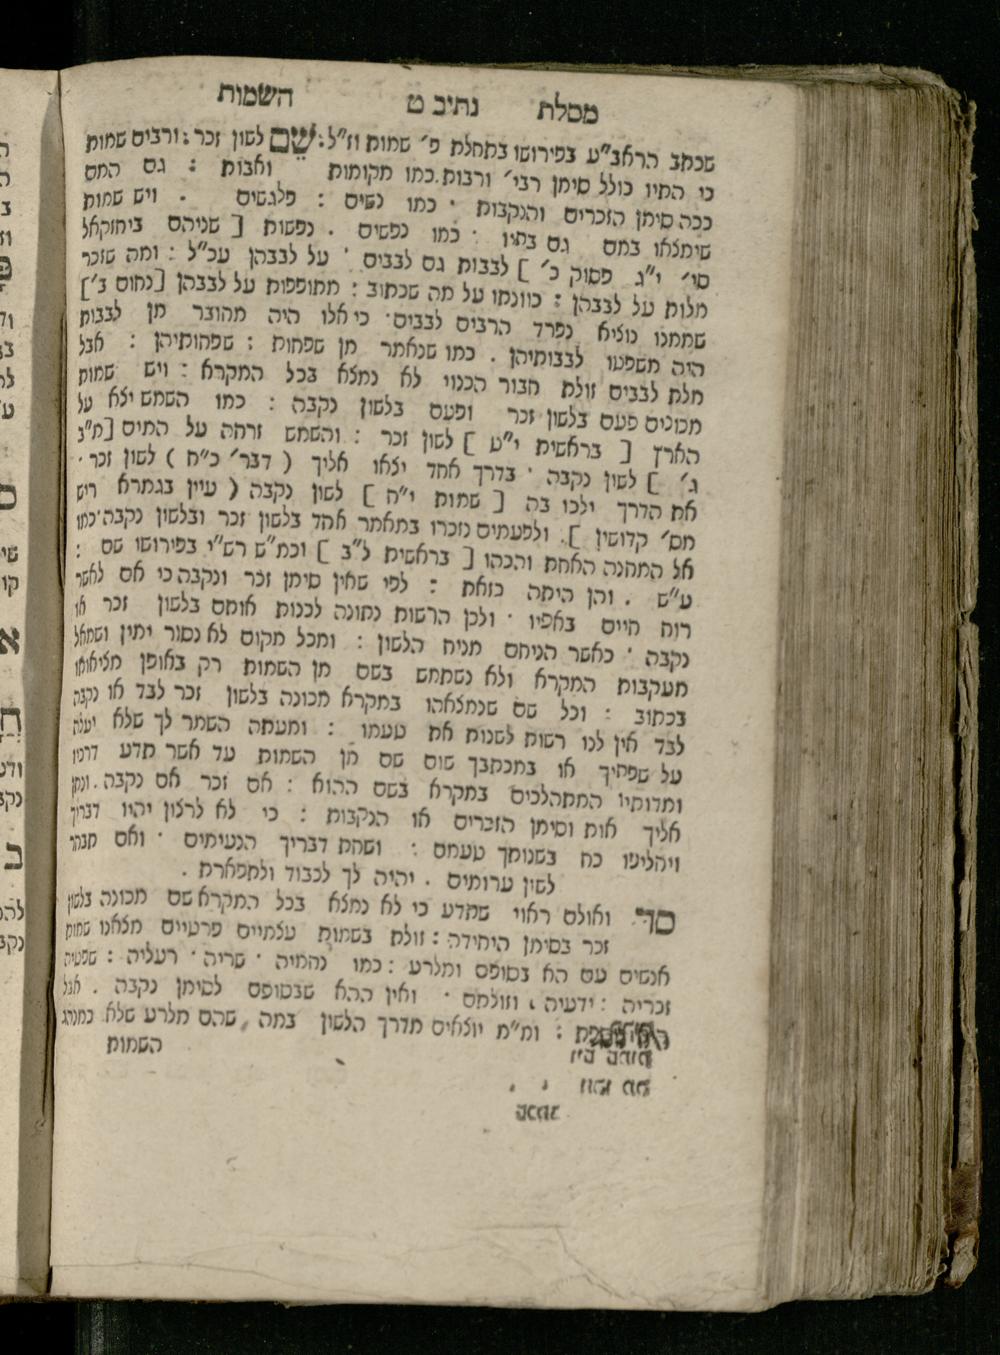 מסלת נתיב ט השמות
שכתב הראב״ע בפירושו בתחלת פ׳ שמות וז״ל: שֵׁם לשון זכר: ורבים שמות
כי התיו כולל סימן רבי׳ ורבות. כמו מקומות ואבות : גם המם
ככה סימן הזכרים והנקבות · כמו נשים : פלגשים . ויש שמות
שימצאו במם גם בתיו · כמו נפשים . נפשות [ שניהם ביחזקאל
סי׳ י״ג פסוק כ׳ ] לבבות גם לבבים · על לבבהן עכ״ל : ומה שזכר
מלות על לבבהן : כוונתו על מה שכתוב : מתופפות על לבבהן [נחום ב׳]
שממנו נוציא נפרד הרבים לבבים · כי אלו היה מהובר מן לבבות
היה משפטו לבבותיהן . כמו שנאמר מן שפחות : שפחותיהן : אבל
מלת לבבים זולת חבור הכנוי לא נמצא בכל המקרא : ויש שמות
מכונים פעם בלשון זכר ופעם בלשון נקבה : כמו השמש יצא על
הארץ [ בראשית י״ט ] לשון זכר : והשמש זרחה על המים [מ״ב
ג׳ ] לשון נקבה · בדרך אחד יצאו אליך ( דבר׳ כ״ח ) לשון זכר ·
את הדרך ילכו בה [ שמות י״ח ] לשון נקבה ( עיין בגמרא ריש
מס׳ קדושין ]. ולפעמים נזכרו במאמר אחד בלשון זכר ובלשון נקבה · כמו
אל המחנה האחת והכהו [ בראשית ל״ב ] וכמ״ש רש״י בפירושו שם :
ע״ש . והן היתה כזאת : לפי שאין סימן זכר ונקבה כי אם לאשר
רוח חיים באפיו · ולכן הרשות נתונה לכנות אותם בלשון זכר או
נקבה · כאשר הניחם מניח הלשון : ומכל מקום לא נסור ימין ושמאל
מעקבות המקרא ולא נשתמש בשם מן השמות רק באופן מציאותו
בכתוב : וכל שם שנמצאהו במקרא מכונה בלשון זכר לבד או נקבה
לבד אין לנו רשות לשנות את טעמו : ומעתה השמר לך שלא יעלה
על שפתיך או במכתבך שום שם מן השמות עד אשר תדע דרכיו
ומדותיו המתהלכים במקרא בשם ההוא : אם זכר אם נקבה . ונתן
אליך אות וסימן הזכרים או הנקבות : כי לא לרצון יהיו דבריך
ויחליטו כח בשנותך טעמם : ושחת דבריך הנעימים · ואם תבחר
לשון ערומים . יהיה לך לכבוד ולתפארת .
סד ואולם ראוי שתדע כי לא נמצא בכל המקרא שם מכונה בלשון
זכר בסימן היחידה : זולת בשמות עצמיים פרטיים מצאנו שמות
אנשים עם הא בסופם ומלרע : כמו נחמיה · שריה · רעליה : שפטיה
זכריה : ידעיה , וזולתם · ואין ההא שבסופם לסימן נקבה . אבל
: ומ״מ יוצאים מדרך הלשון במה , שהם מלרע שלא כמנהג
השמות